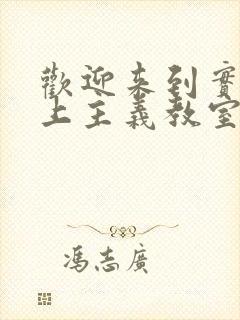 歡迎来到實
上主義教室
馮志廣